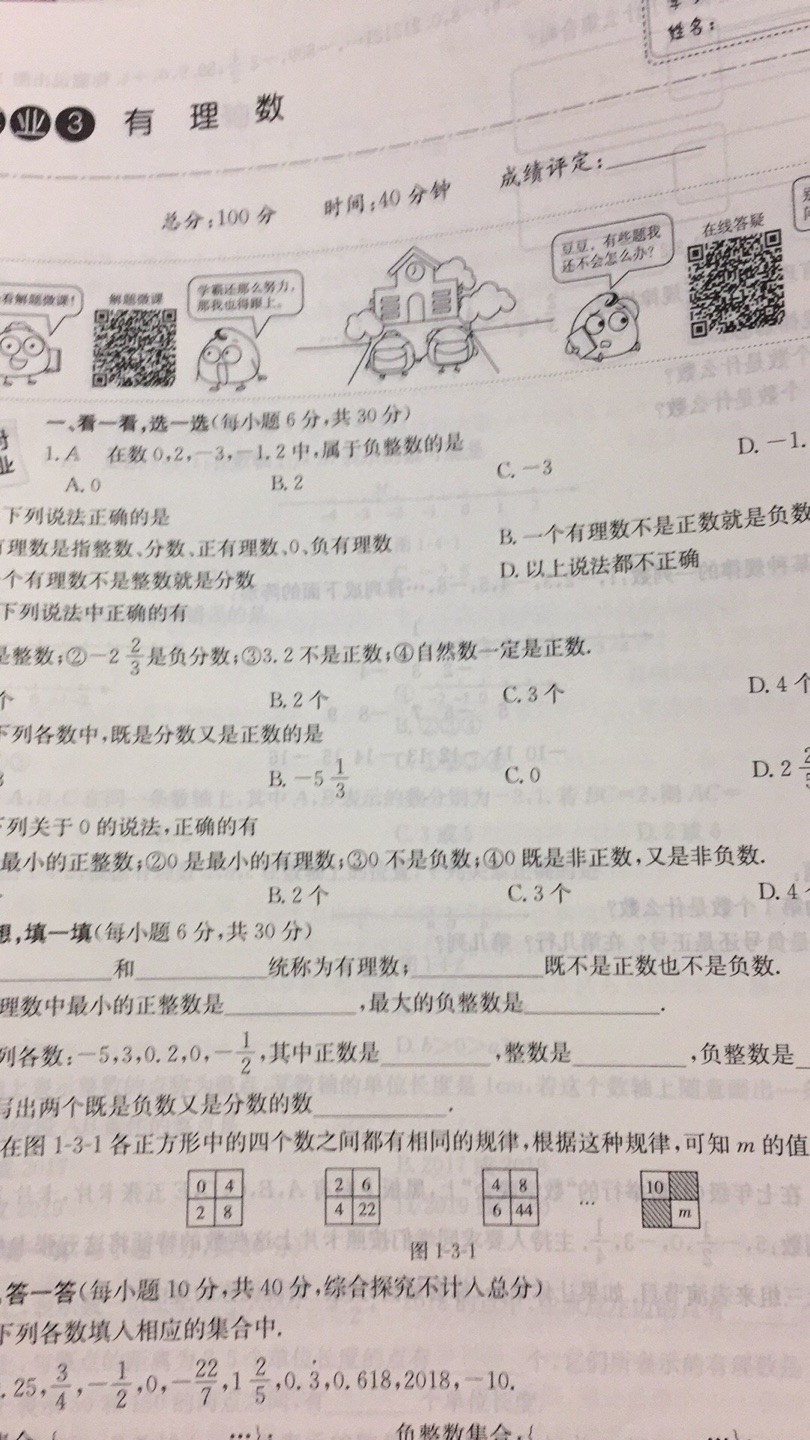 姓名:
业3 有理数
总分:100分 时间:40分钟 成绩评定:
看解题微课!
解题微课
学霸还那么努力,
那我也得跟上。
豆豆,有些题我
还不会怎么办?
在线答疑
一、看一看,选一选(每小题6分,共30分)
1.A 在数0,2,-3,-1.2中,属于负整数的是
A.0 B.2 C.-3 D.-1.
下列说法正确的是
有理数是指整数、分数、正有理数、0、负有理数 B.一个有理数不是正数就是负数
个有理数不是整数就是分数 D.以上说法都不正确
下列说法中正确的有
是整数;②-2 2/3是负分数;③3.2不是正数;④自然数一定是正数.
个 B.2个 C.3个 D.4个
下列各数中,既是分数又是正数的是
B.-5 1/3 C.0 D.2
列关于0的说法,正确的有
最小的正整数;②0是最小的有理数;③0不是负数;④0既是非正数,又是非负数.
B.2个 C.3个 D.4
想,填一填(每小题6分,共30分)
和 统称为有理数; 既不是正数也不是负数.
理数中最小的正整数是 ,最大的负整数是 .
列各数:-5,3,0.2,0,-1/2,其中正数是 ,整数是 ,负整数是
写出两个既是负数又是分数的数 .
在图1-3-1各正方形中的四个数之间都有相同的规律,根据这种规律,可知m的值
0 4 2 6 4 8 10
2 8 4 22 6 44 … m
图1-3-1
答一答(每小题10分,共40分,综合探究不计入总分)
下列各数填入相应的集合中.
.25,3/4,-1/2,0,-22/7,1 2/5,0.3̇,0.618,2018,-10.
…}; 负整数集合:{ …}.